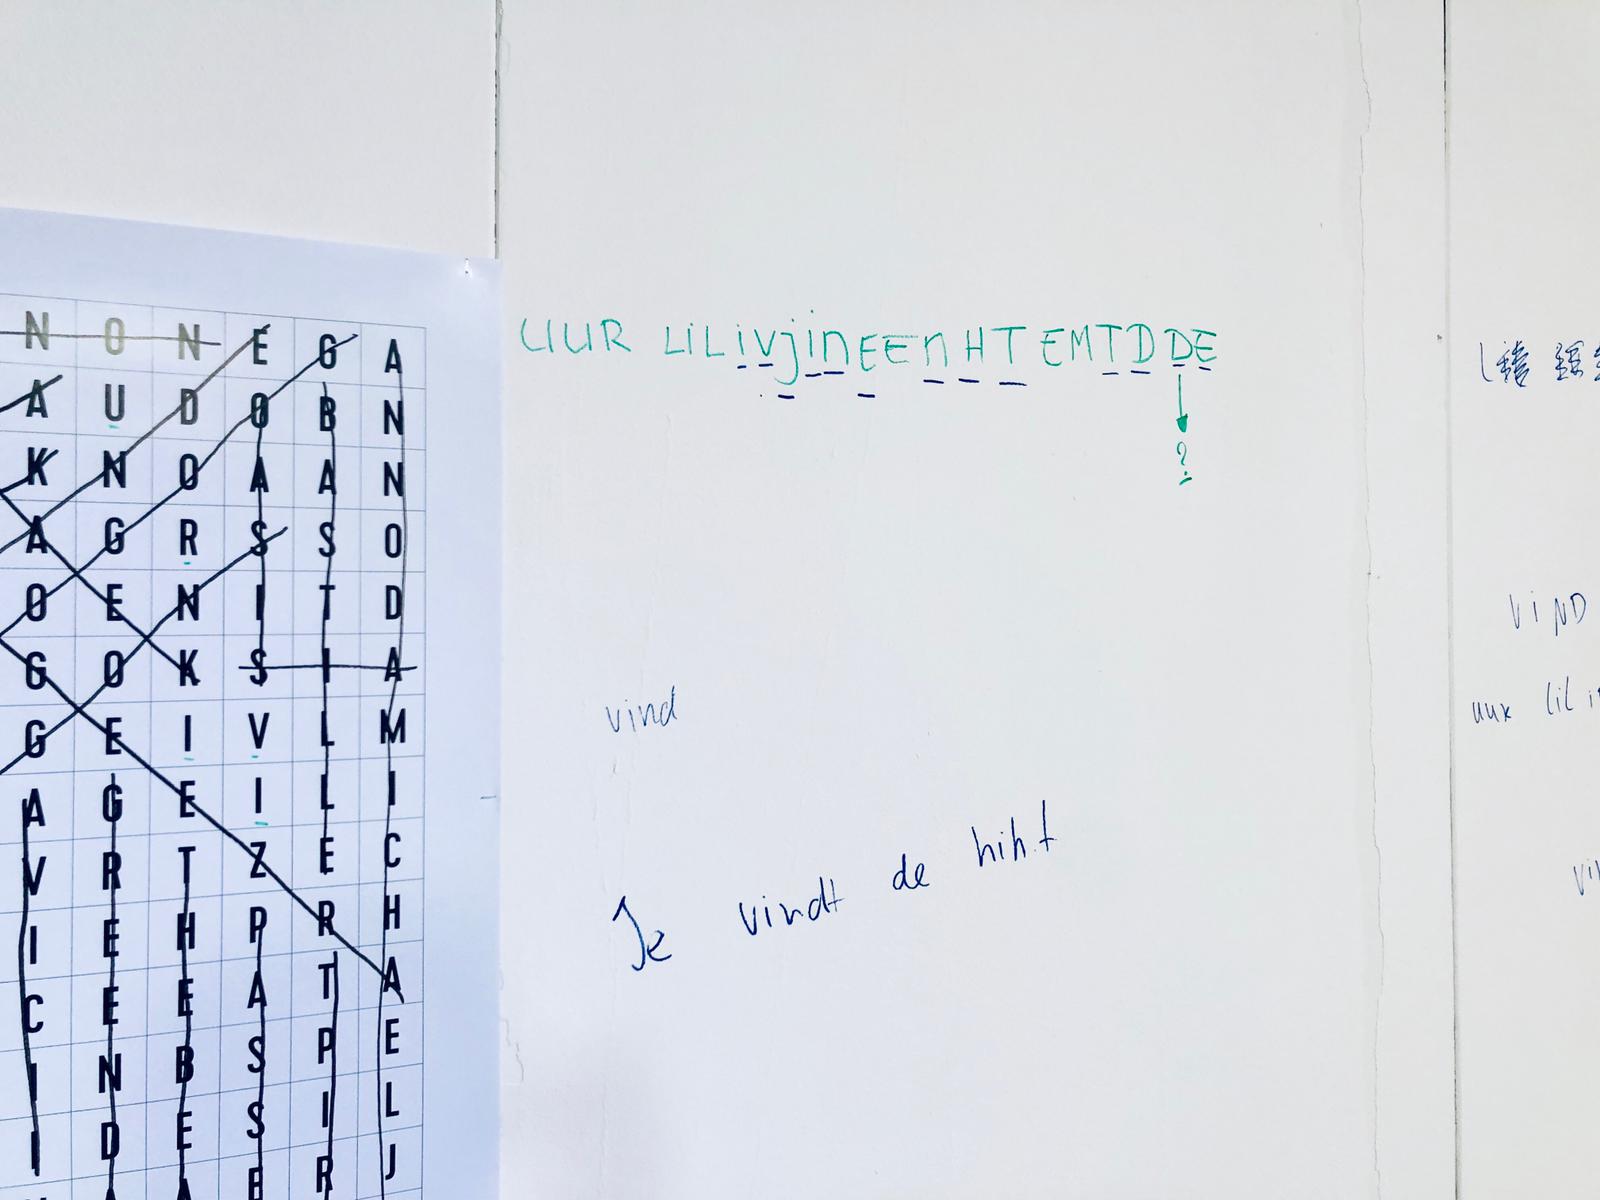 N O N E G A
A U D O B N
K N O A A N
A G R S S O
O E N I T D
G O K S I A
G E I V L M
A G E I L I
V R T Z E C
I E H P R H
C E E A T A
I N B S P E
I D E S I L
R J
UUR LiLiVjinEEnHT EMTDDE
?
vind
Je vindt de hiht
VIND
uux lil